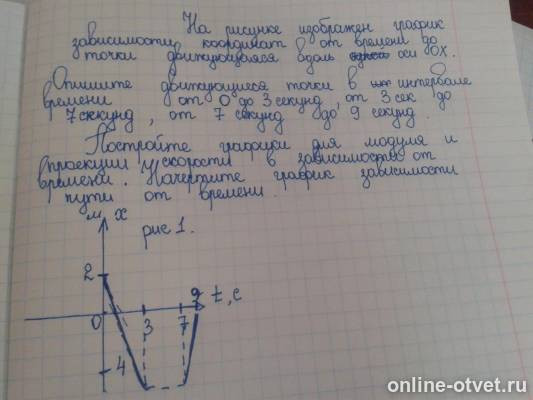 На рисунке изображен график
зависимости координат от времени до
точки движующаяся вдоль оси OX.
Опишите движующиеся точки в интервале
времени от 0 до 3 секунд, от 3 сек до
7 секунд, от 7 секунд до 9 секунд.
Постройте графики для модуля и
проекции скорости в зависимости от
времени. Начертите график зависимости
пути от времени.
м x
рис 1.
2
9 t, c
0 3 7
4
online-otvet.ru